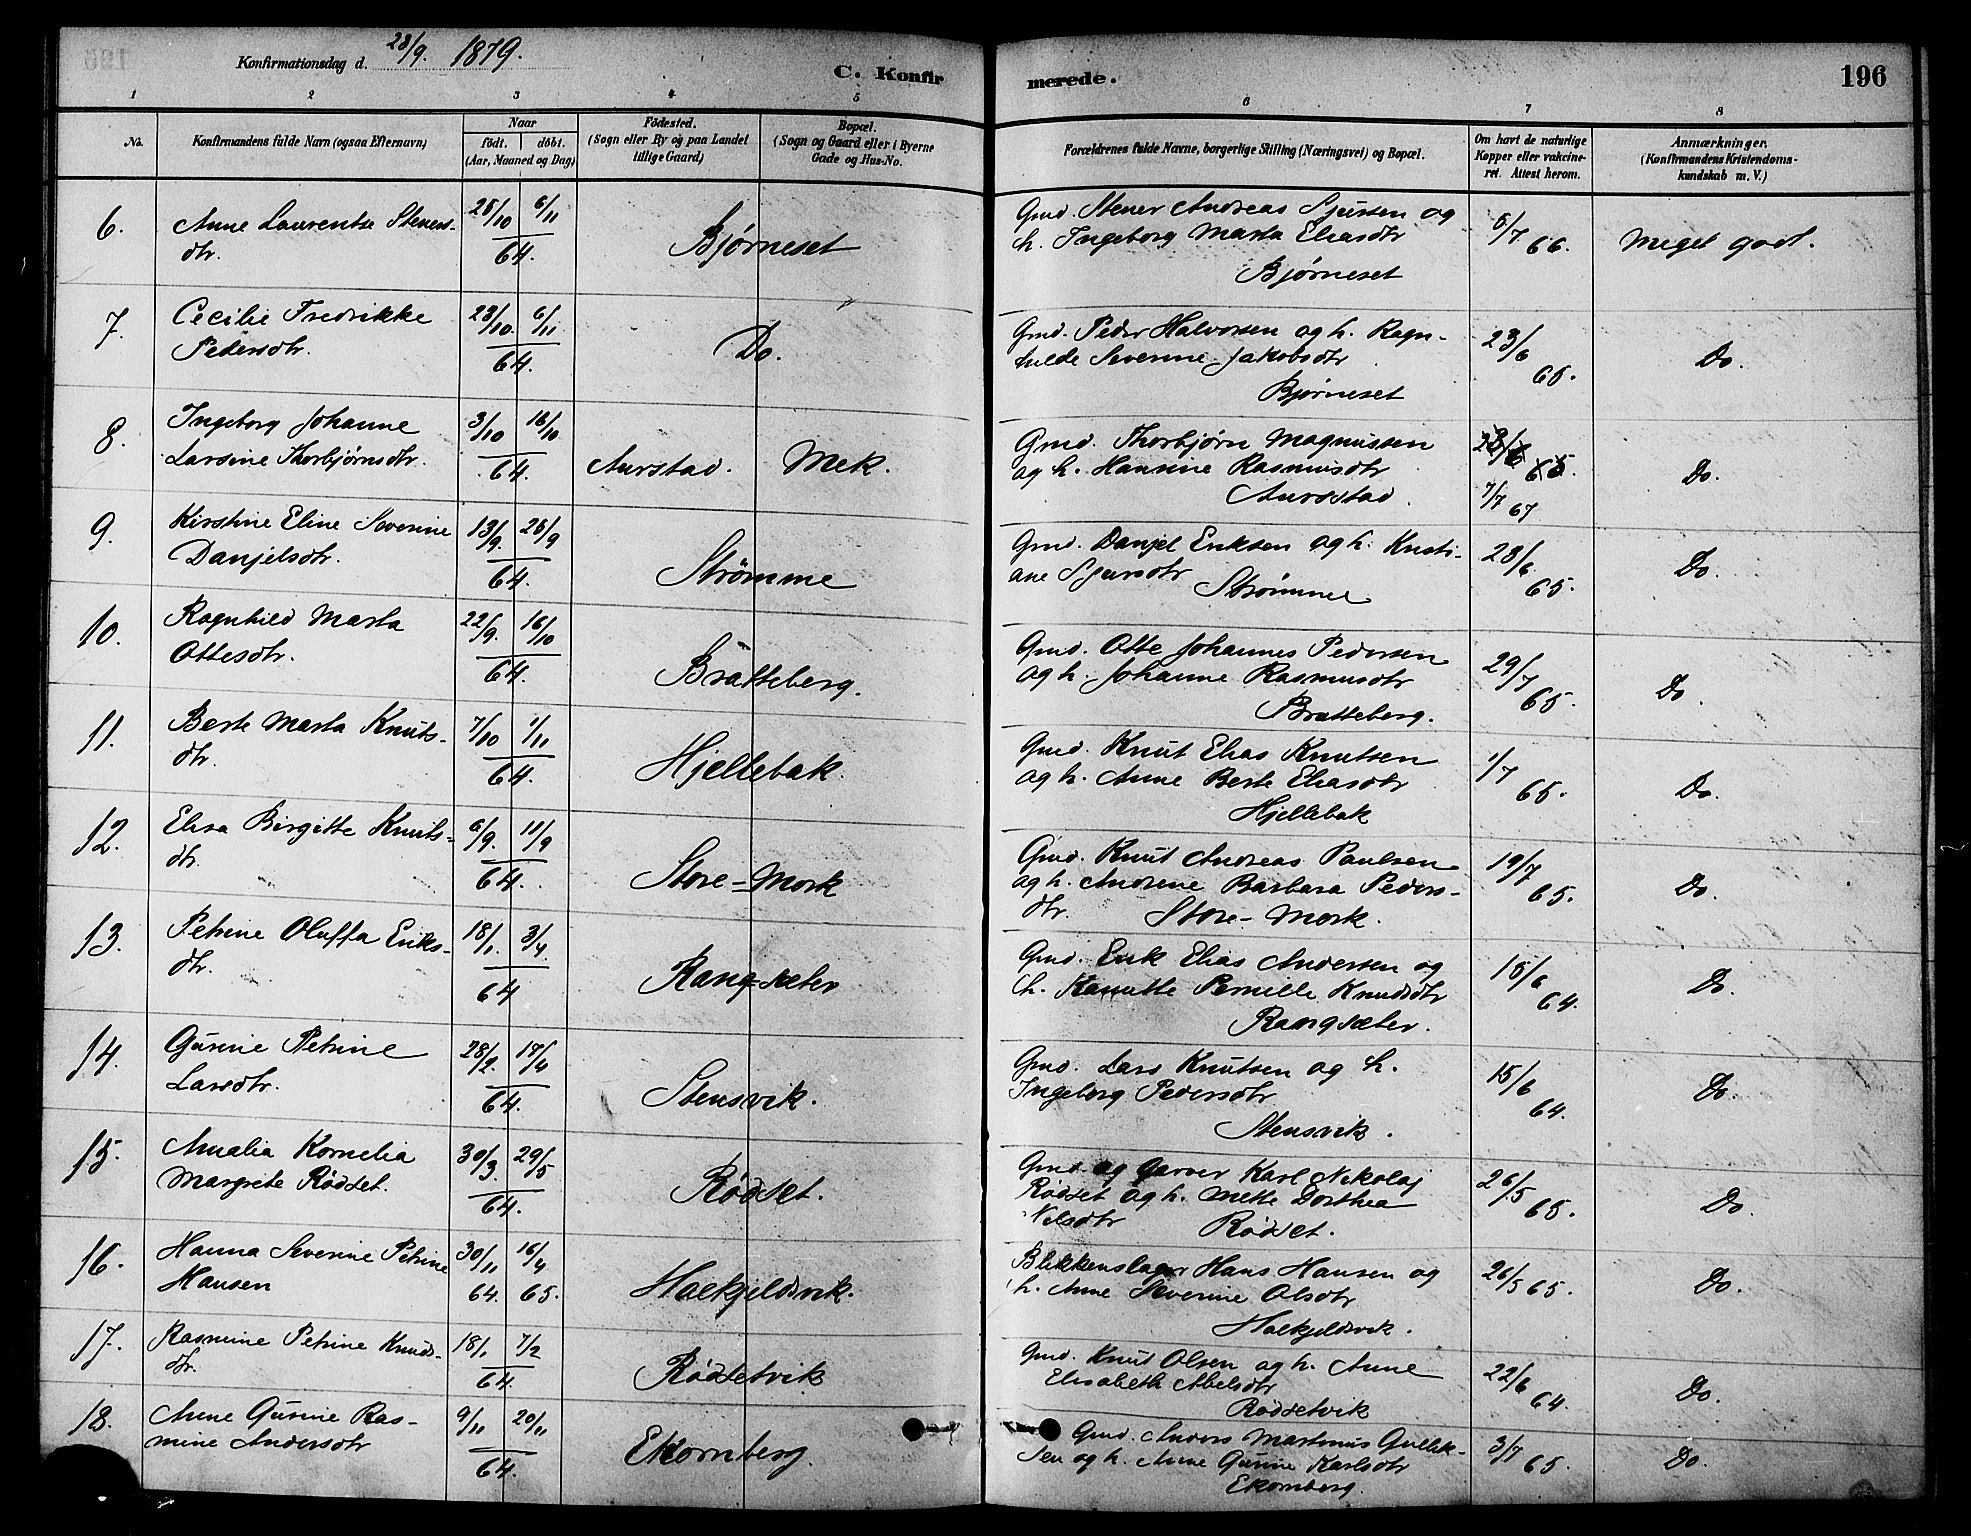 Konfirmationsdag d. 28/9. 1879.
C. Konfirmerede.
196
1 2 3 4 5 6 7 8
No.
Konfirmandens fulde Navn (ogsaa Efternavn)
Naar
födt. döbt.
(Aar, Maaned og Dag)
Födested.
(Sogn eller By og paa Landet
tillige Gaard)
Bopæl.
(Sogn og Gaard eller i Byerne
Gade og Hus-No.
Forældrenes fulde Navne, borgerlige Stilling (Næringsvei) og Bopæl.
Om havt de naturlige
Kopper eller vakcine-
ret. Attest herom.
Anmærkninger.
(Konfirmandens Kristendoms-
kundskab m. V.)
6. Anne Laurentse Steners-
dtr.
6/11
64.
Bjørneset
Gmd. Stener Andreas Sjursen og
h. Ingeborg Marta Eliasdtr
Bjørneset
6/7 66.
Meget godt.
7. Cecilie Fredrikke
Pedersdtr.
23/10. 6/11
64.
Do.
Gmd. Peder Halvorsen og h. Ragn-
hilde Severine Jakobsdtr
Bjørneset
23/6 65.
Do.
8. Ingeborg Johanne
Larsine Thorbjørnsdtr.
3/10 16/10
64.
Aurstad. Mek.
Gmd. Thorbjørn Magnussen
og h. Hansine Rasmusdtr
Aurstad.
7/7 67
Do.
9. Kirstine Eline Severine
Danjelsdtr.
13/9. 25/9
64.
Strømme
Gmd. Danjel Eriksen og h. Kristi-
ane Sjursdtr
Strømme
28/6. 65.
Do.
10. Ragnhild Marta
Ottesdtr.
22/9. 16/10
64.
Bratteberg.
Gmd. Otte Johannes Pedersen
og h. Johanne Rasmusdtr
Bratteberg.
29/7 65.
Do.
11. Berte Marta Knuts-
dtr.
7/10 1/11
64.
Hjellebak.
Gmd. Knut Elias Knutsen
og h. Anne Berte Eliasdtr
Hjellebak
1/7 65.
Do.
12. Elisa Birgitte Knuts-
dtr.
6/9. 11/9
64.
Store-Mork
Gmd. Knut Andreas Paulsen
og h. Andrine Barbara Peders-
dtr. Store-Mork.
19/7 65.
Do.
13. Petrine Oluffa Eriks-
dtr.
18/1. 3/4.
64
Rang-sæter
Gmd. Erik Elias Andersen og
h. Kanutte Pernille Knudsdtr
Rangsæter.
15/6 64.
Do.
14. Gurine Petrine
Larsdtr.
28/2. 17/4
64.
Stensvik.
Gmd. Lars Knutsen og h.
Ingeborg Pedersdtr
Stensvik.
15/6 64.
Do.
15. Amalia Kornelia
Margrete Rødset.
30/3. 29/5
64.
Rødset.
Gmd. og Garver Karl Nikolaj
Rødset og h. Mette Dorthea
Nilsdtr Rødset.
26/5 65.
Do.
16. Hanna Severine Petrine
Hansen
30/11 16/4
64. 65.
Holkjeldsvik.
Blikkenslager Hans Hansen og
h. Anne Severine Olsdtr
Holkjeldsvik.
26/5 65.
Do.
17. Rasmine Petrine Knuds-
dtr.
18/1 7/2
64.
Rødsetvik
Gmd. Knut Olsen og h. Anne
Elisabeth Abelsdtr
Rødsetvik
22/6 64.
Do.
18. Anne Gurine Ras-
mine Andersdtr
9/11 20/11
64.
Ekornberg.
Gmd. Anders Martinus Gullik-
sen og h. Anne Gurine Karlsdtr
Ekornberg.
3/7 65.
Do.